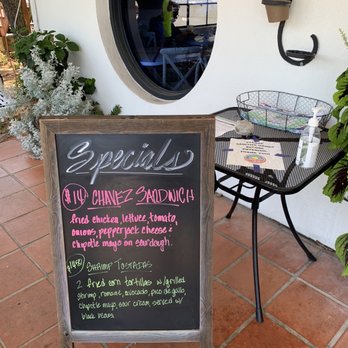 Specials
$14 CHAVEZ SANDWICH
fried chicken, lettuce, tomato,
onions, pepperjack cheese &
chipotle mayo on sourdough.
SHRIMP TOSTADAS
2 fried corn tortillas w/grilled
shrimp, romaine, avocado, pico de gallo,
chipotle mayo, sour cream, served w/
black beans